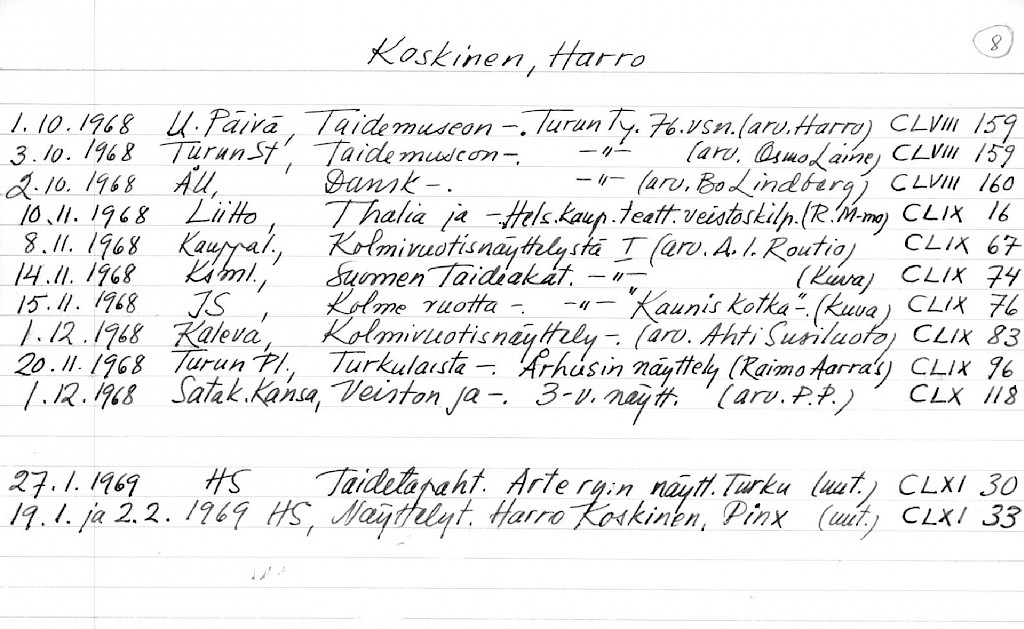 8
Koskinen, Harro
1.10.1968 U. Päivä, Taidemuseon -. Turun Ty. 76. vsn. (arv. Harro) CLVIII 159
3.10.1968 Turun St, Taidemuseon -. -"- (arv. Osmo Laine) CLVIII 159
2.10.1968 ÅU, Dansk -. -"- (arv. Bo Lindberg) CLVIII 160
10.11.1968 Liitto, Thalia ja -. Hels. kaup. teatt. veistoskilp. (R. M-mo) CLIX 16
8.11.1968 Kauppal., Kolmivuotisnäyttelystä I (arv. A.I. Routio) CLIX 67
14.11.1968 Ksml., Suomen Taideakat. -"- (kuva) CLIX 74
15.11.1968 IS, Kolme vuotta -. -"- "Kaunis kotka" -. (kuva) CLIX 76
1.12.1968 Kaleva, Kolmivuotisnäyttely -. (arv. Ahti Susiluoto) CLIX 83
20.11.1968 Turun Pl., Turkulaista -. Århusin näyttely (Raimo Aarras) CLIX 96
1.12.1968 Satak. Kansa, Veiston ja -. 3-v. näytt. (arv. P.P.) CLX 118
27.1.1969 HS Taidetapaht. Arte ry:n näytt. Turku (uut.) CLXI 30
19.1. ja 2.2. 1969 HS, Näyttelyt. Harro Koskinen, Pinx (uut.) CLXI 33